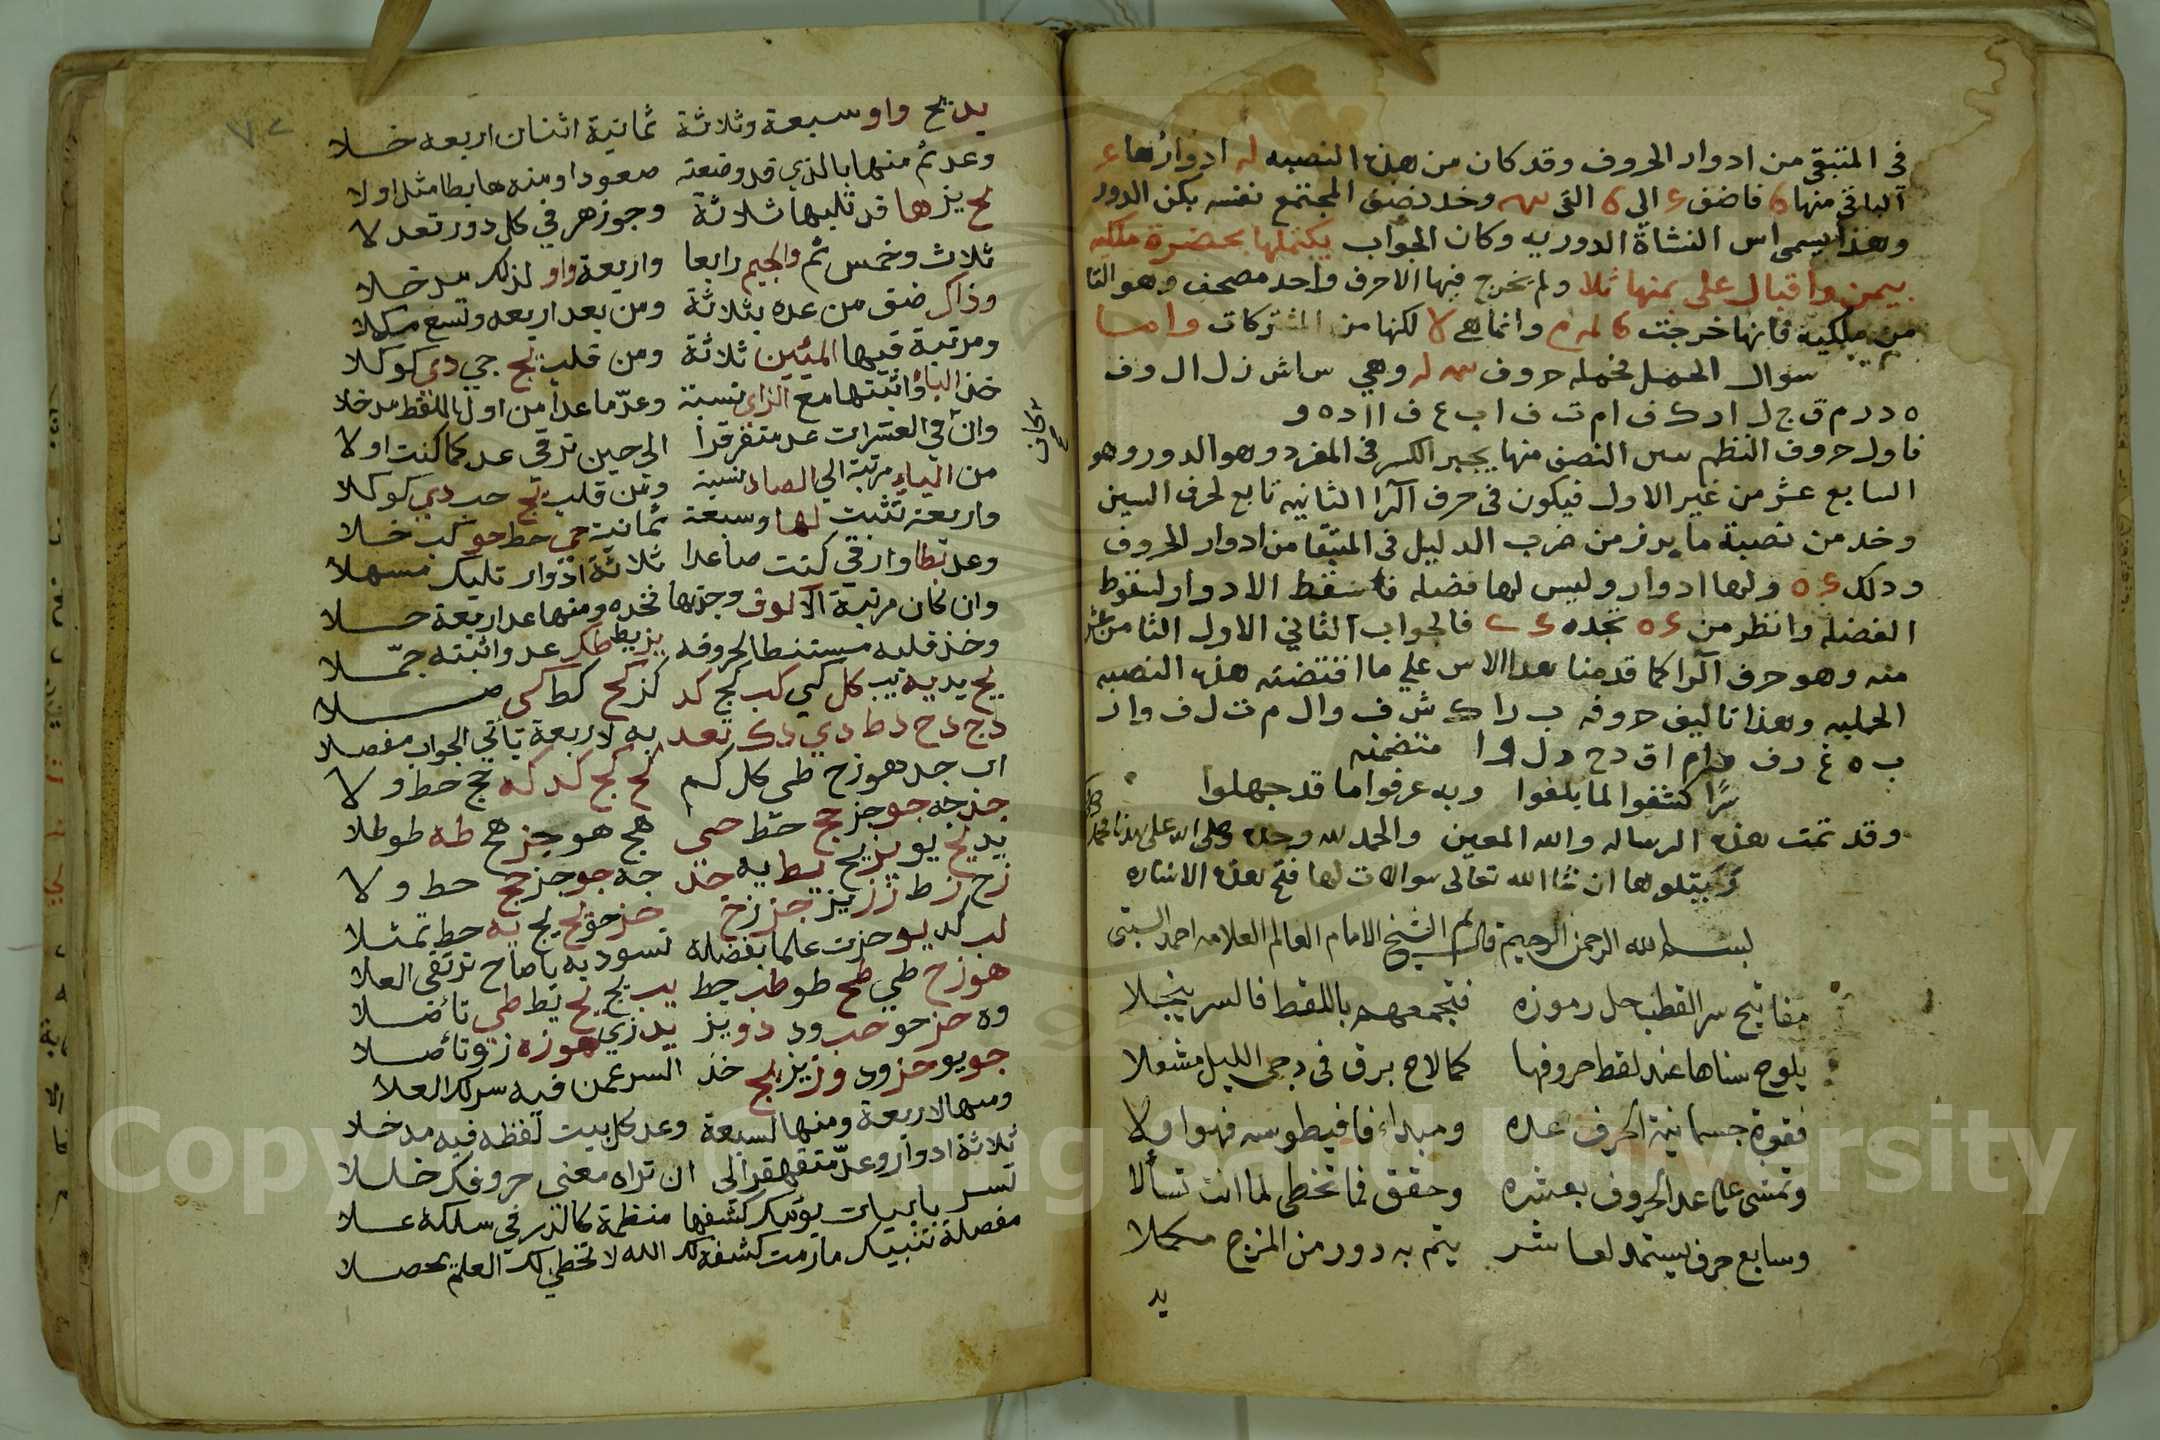 في المتبقي من ادوار الحروف وقد كان من هذه النصبه له ادوارها ع
الباقي منها 6 فاضف ع الي 6 التي سه وخد نصف المجتمع نفسه يكن الدور
وهذا يسمى اس النشاة الدوريه وكان الجواب يكتملها بحضرة ملكيه
بيمن واقبال على يمنها تلا ولم يخرج فيها الاحرف واحد مصحف وهو التا
من ملكية فانها خرجت وانما هي لا لكنها من المشتركات واما
سوال الحمل فجمله حروف سه له وهي س ا ش ز ل ا ل و ف
ه د ر م ق ج ل ا د ك ف ا م ت ف ا ب ع ف ا ا د ه و
فاول حروف النظم س النصف منها يجبر الكسر في المفرد وهو الدور وهو
السابع عشر من غير الاول فيكون في حرف الرا الثانيه تابع لحرف السين
وخد من نصبة ما يرز من ضرب الدليل في المتبقا من ادوار الحروف
ودلك ع ه ولها ادوار وليس لها فضله فاسقط الادوار لسقوط
الفضله وانظر من ع ه تجده فالجواب الثاني الاول الثامن عشر
منه وهو حرف الرا كما قدمنا بعد الاس علي ما اقتضته هذه النصبه
الحمليه وهذا تاليف حروفه ب ر ا ك ش ف و ا ل م ت ل ف و ا ر
ب ه ع ر ف و ا م ا ق د ج ه ل و ا متضمنه
سرا كشفوا لما يلفوا وبه عرفوا ما قد جهلوا
وقد تمت هذه الرساله والله المعين والحمد لله وحده وصلى الله على سيدنا محمد
ويتلوها ان شا الله تعالى سوالات لها فتح بهذه الاشاره
بسم الله الرحمن الرحيم قال الشيخ الامام العالم العلامه احمد السبتي
مفاتيح سر القطب حل رموزه فتجمعهم باللقط فالسر ينجلا
يلوح سناها عند لقط حروفها كما لاح برق في دجى الليل مشعلا
فقوة جسمانية الحرف عده ومبداء فافيطوسه فهوا ولا
وتمشى على عد الحروف بعشره وحقق فما تخطى لما انت تسألا
وسابع حرف يستمد لعاشر يتم به دور من المزج مكملا
يد
يد يح واو سبعة وثلاثة ثمانية اثنان اربعه خلا
وعد ثم منها بالذي قد وضعته صعودا ومنه هابطا مثل اولا
يح يز ها قد ثلبها ثلاثة وجوزهر في كل دور تعد لا
ثلاث وخمس ثم والجيم رابعا واربعة واو لذلك مدخلا
وذاك ضف من عده بثلاثة ومن بعد اربعه وتسع مكملا
ومرتبة فيها المئين ثلاثة ومن قلب يح جي دي كو كلا
خذ الباء واثبتها مع الزاي نسبة وعد ما عدا من اول اللقط مدخلا
وان في العشرات عد متفرقا الى حين ترقى عد كما كنت اولا
من الياء مرتبة الي الصاد نسبة ومن قلب يح حب دي كو كلا
واربعة تثبت لها وسبعة ثمانية حي حط حو كب خلا
وعد بطا وارقي كنت صاعدا ثلاثة ادوار تليك مسهلا
وان كان مرتبة الالوف وجزها فخذه ومنها عد اربعة خلا
وخذ قلبه مستنبطا لحروفه يز يط كل عد واثبته جملا
يح يد يه يب كل كي كب كج كد كز كح كط كي صلا
دج دح دط دي دك تعد به لاربعة تأتي الجواب مفصلا
اب جد هوزح طي كل كم كح كج كد كه يج حط و لا
جذ جه جو جز جح حط حي هج هو جز هح طه طو طلا
يد يح يو يز يح يط يه حذ جه جو جز جح حط و لا
زح زط زز يز جز زح خز حو يح يج يه حط تمثلا
لب كد يو حزت علما بفضله تسود به يا صاح ترتقى العلا
هوزح طي طح طو طب جط يب يج يح يط طي تأصلا
وه حز حو حب ود دو يز يد زي هوزه زو تأصلا
جو يو حز ود وز يز يح خذ السر عمن فيه سرك العلا
ومنها الاربعة ومنها لسبعة وعد كل بيت لفظه فيه مدخلا
ثلاثة ادوار وعد متقهقرا الى ان تراه معنى حروفك خللا
تسر بابيات يؤتيك كشفها منظمة كالدر في سلكه علا
مفصلة تنبيك ما رمت كشفه لك الله لا تخطي لك العلم يحصلا
Copyright © King Saud University